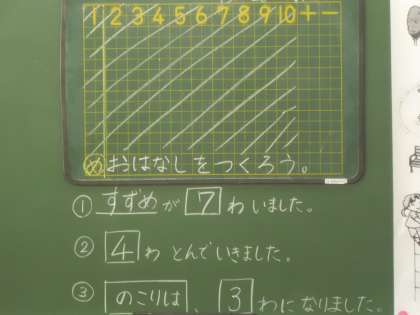 1 2 3 4 5 6 7 8 9 10 + −
め おはなしをつくろう。
① すずめが 7 わいました。
② 4 わ とんでいきました。
③ のこりは、 3 わになりました。